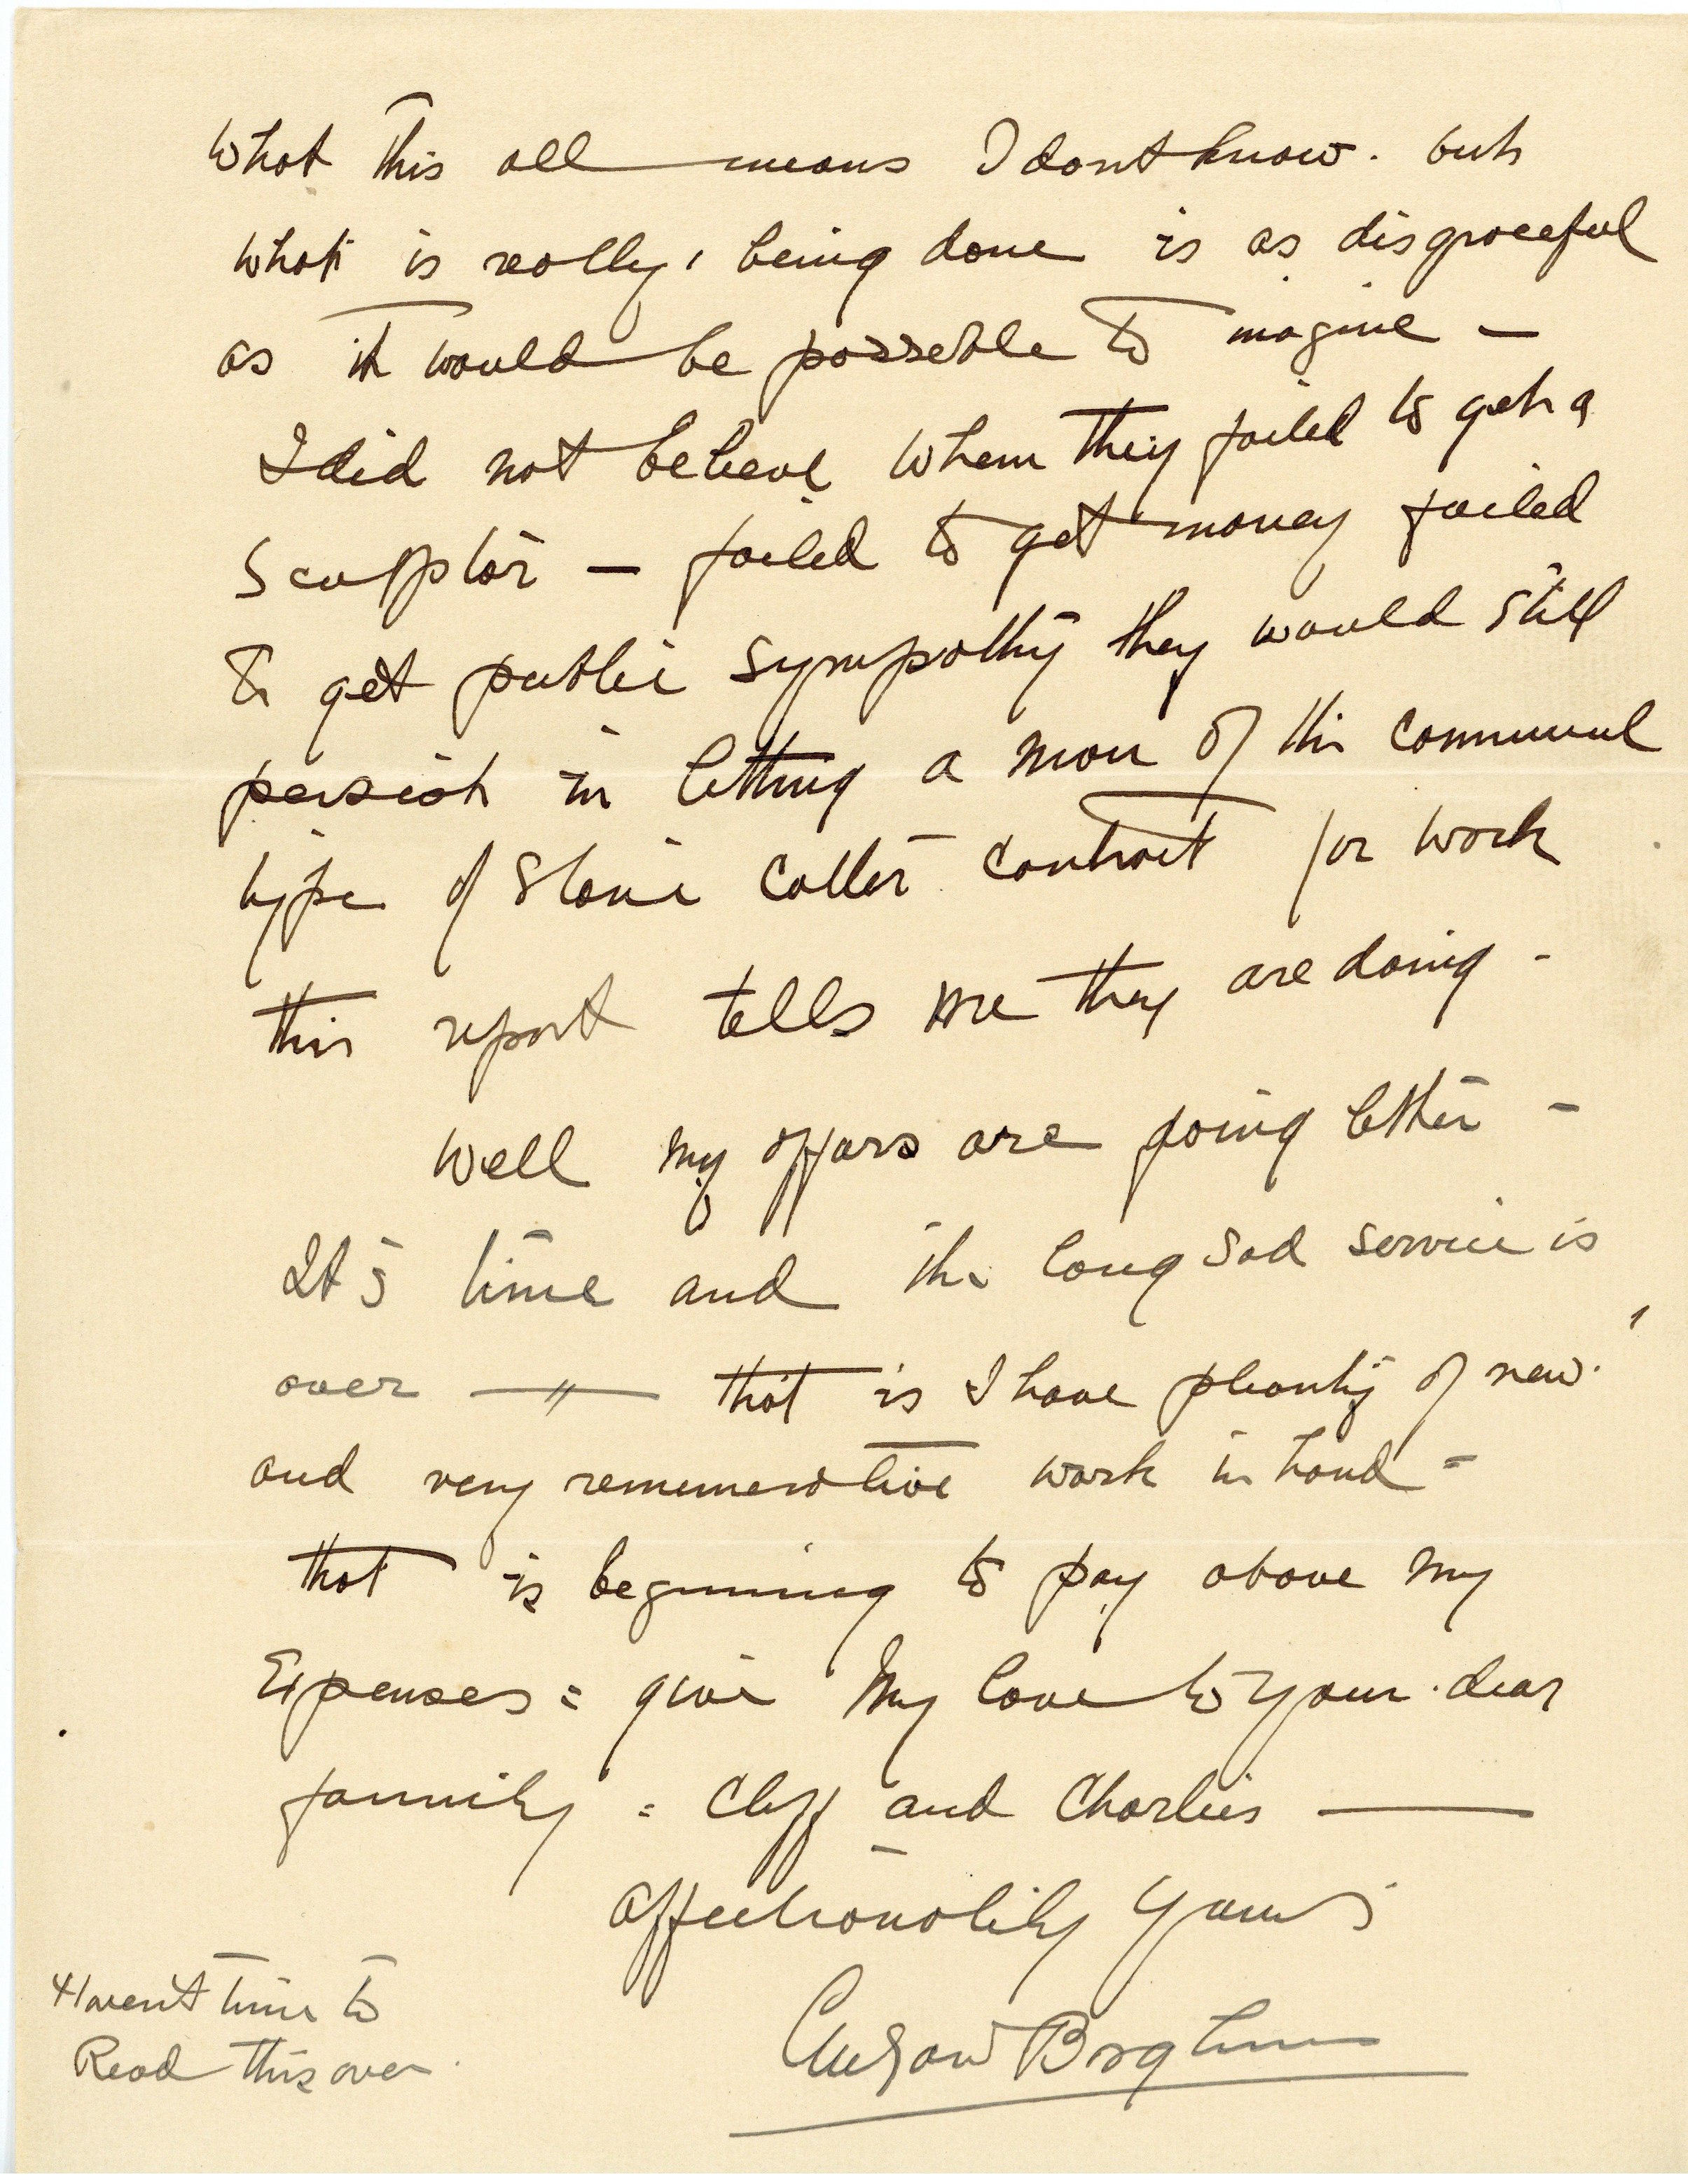 What this all means I dont know. but
what is really, being done is as disgraceful
as it would be possible to imagine —
I did not believe when they failed to get a
Sculptor — failed to get money failed
to get public sympathy they would still
persist in letting a man of this
type of stone cutter contract for work
this report tells me they are doing -
Well my affars are going better —
It's time and the long sad service is
over — that is I have pleanty of new
and very remunerative work in hand =
that is beginning to pay above my
Expenses = give my love to your dear
family = Cliff and Charlies —
affectionately yours
Gutzon Borglum
Havent time to
Read this over.